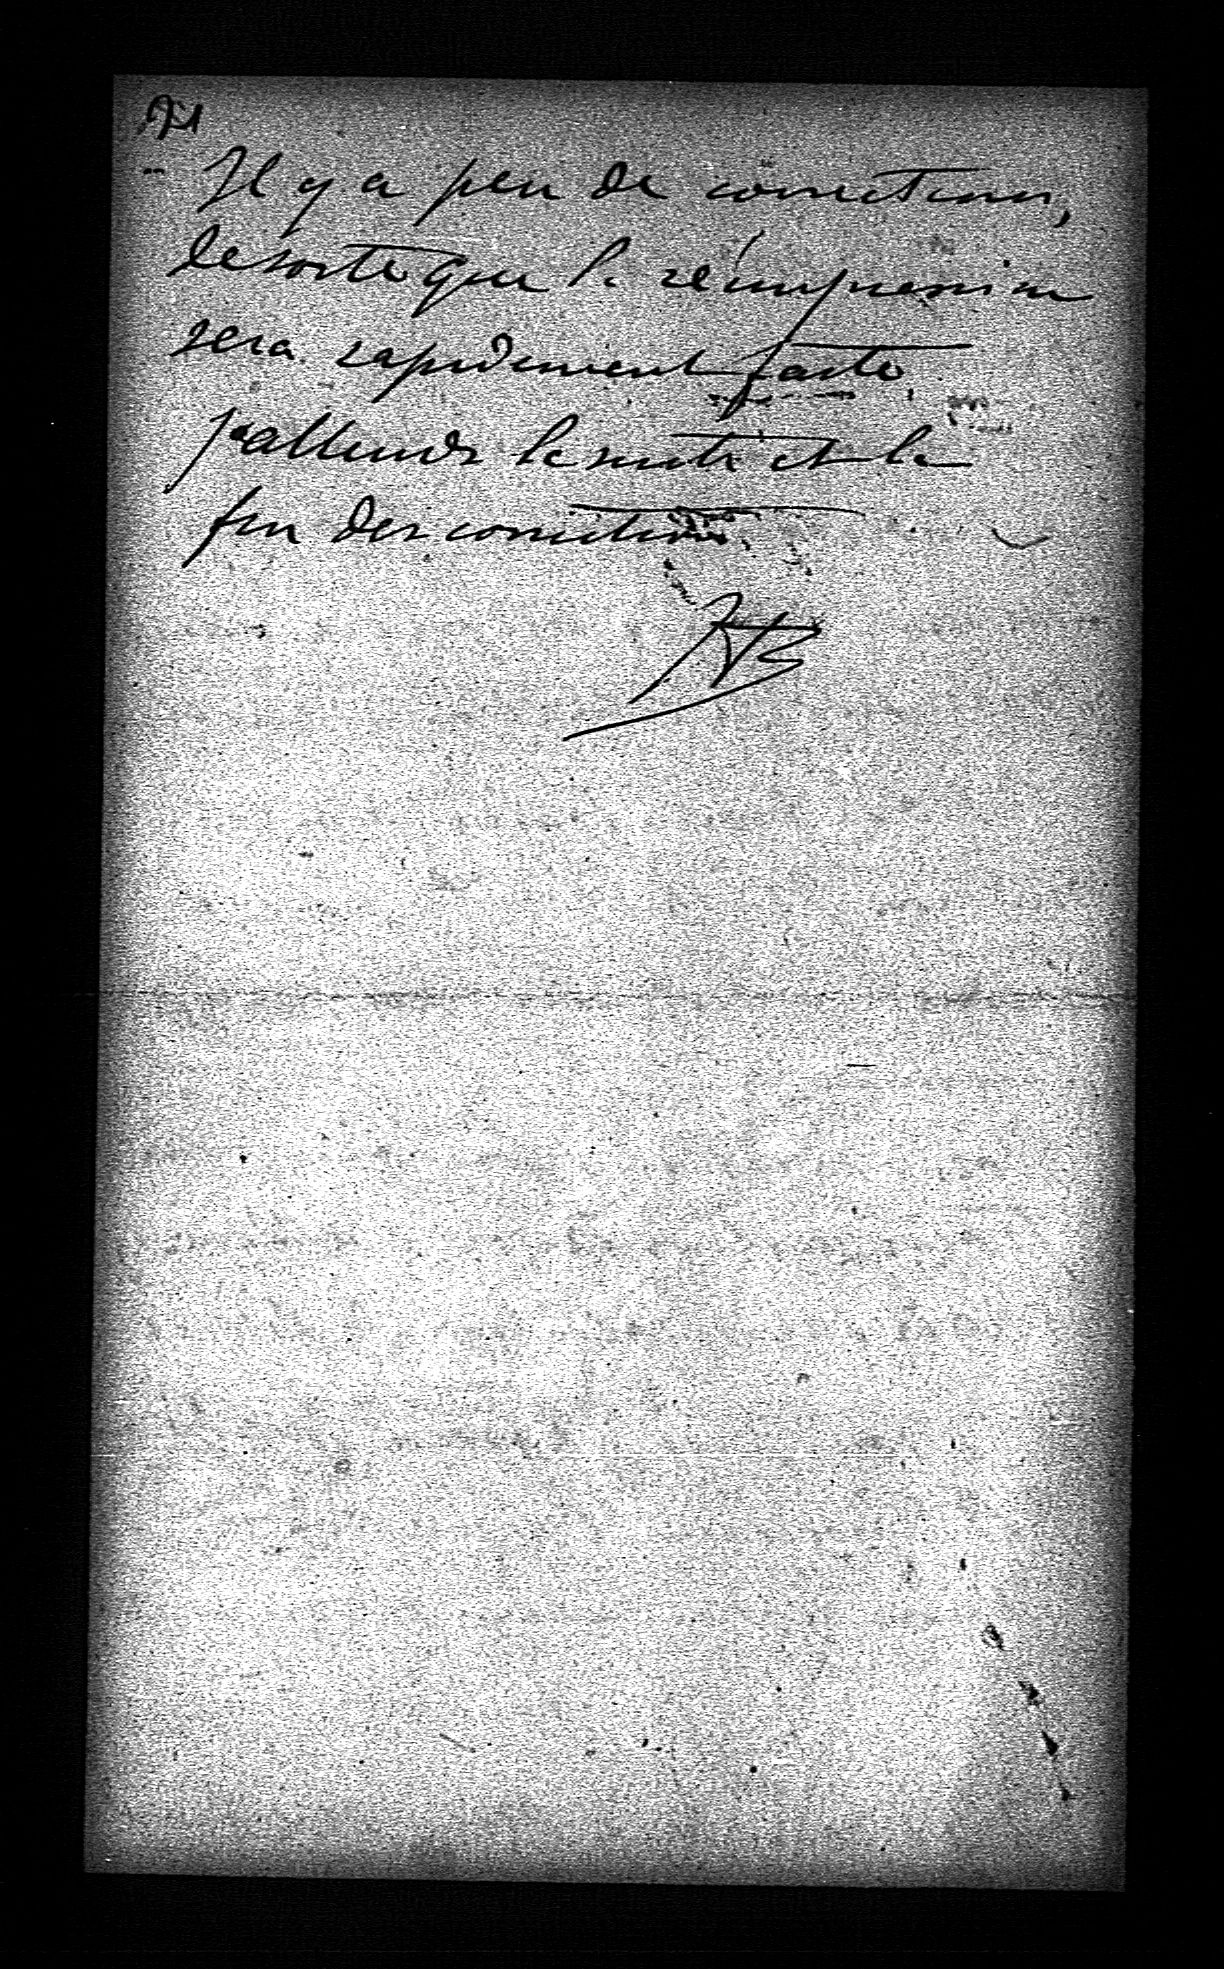 Il y a peu de corrections,
de sorte que la réimpression
sera rapidement faite.
J'attends la suite et la
fin des corrections.